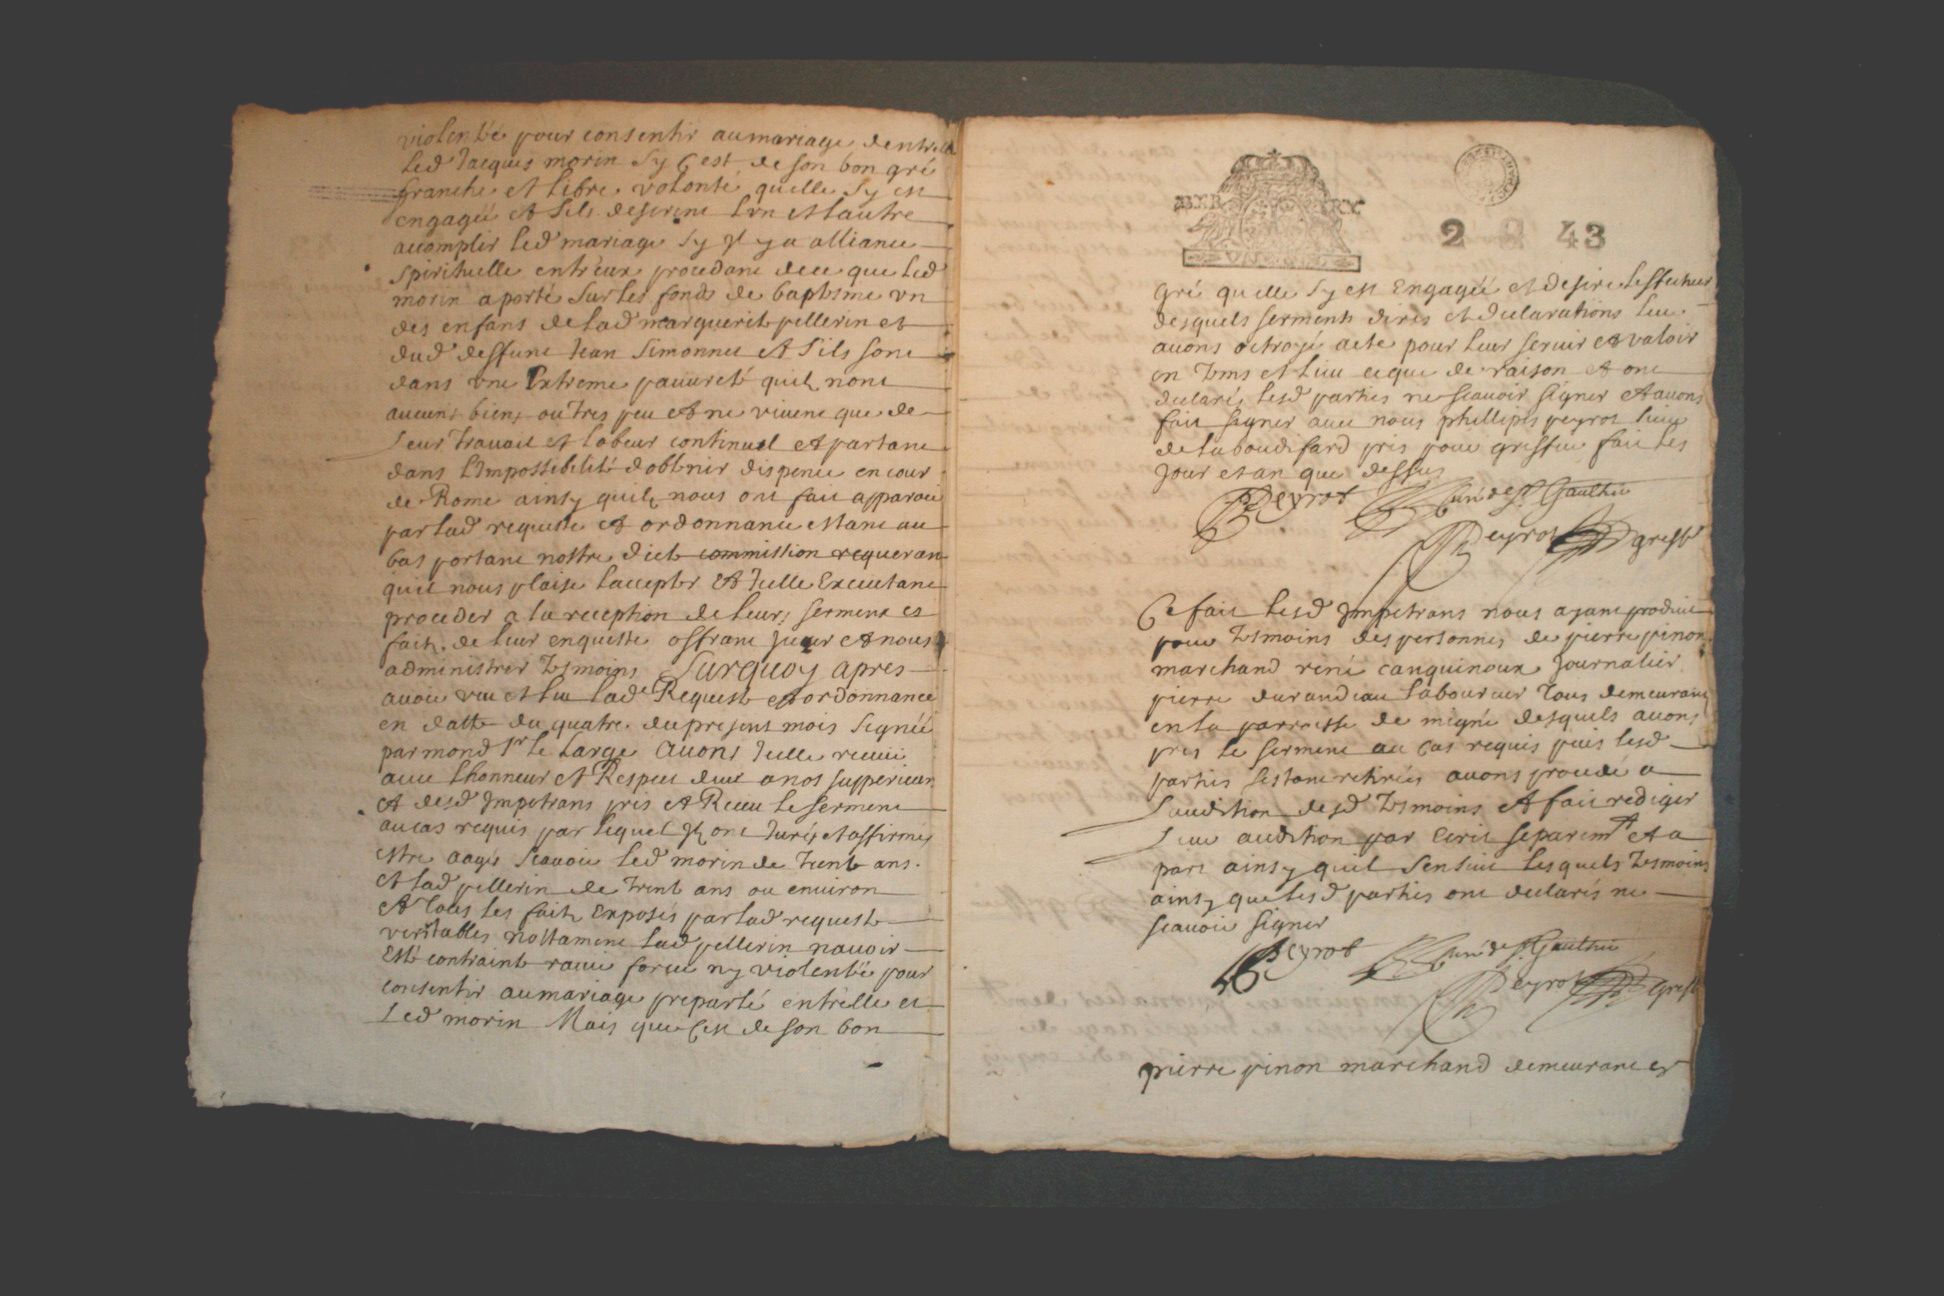 violentée pour consentir au mariage dentrelle
led Jacques morin sy cest de son bon gré
franche et libre volonté quelle sy est
engagée et sils desirent lun et lautre
accomplir led mariage sy Jl y a alliance
spirituelle entreux procedant de ce que led
morin a porté sur les fonds de baptesme vn
des enfans de lad marguerite pellerin et
dud deffunt Jean Simonnet et sils sont
dans vne Extreme pauureté quils nont
aucuns biens ou tres peu et ne viuent que de
leur trauail et labeur continuel et partant
dans limpossibilité dobtenir dispence en cour
de Rome ainsy quils nous ont fait apparoir
par lad requeste et ordonnance estant au
bas portant nostre dicte commission requerant
quil nous plaise laccepter et Jcelle Executant
proceder a la reception de leurs serment et
faits de leur enqueste offrant Jurer et nous
administrer tesmoins Surquoy apres
auoir veu et leu lade Requeste et ordonnance
en datte du quatre du present mois signée
par mond sr le Large auons Jcelle receue
auec lhonneur et Respect deue a nos superieurs
et desd Jmpetrans pris et Receu le serment
au cas requis par lequel Jls ont Jurés et affirmés
estre aagés scauoir led morin de trente ans
et lad pellerin de trente ans ou enuiron
et tous les faits Exposés par lad requeste
veritables nottament lad pellerin nauoir
Esté contrainte rauie forcée ny violentée pour
consentir au mariage preparlé entrelle et
led morin Mais que cest de son bon
BER RY
2 43
gré quelle sy est Engagée et desire leffectuer
desquels serments dires et declarations leur
auons octroyé acte pour leur seruir et valoir
en tems et lieu ce que de raison et ont
declaré lesd parties ne scauoir signer et auons
fait signer auec nous phillipes peyrot sieur
de laboudifard pris pour greffier fait les
Jour et an que dessus
Peyrot Curé de St Gaultier
Peyrot greff
Ce fait lesd Jmpetrans nous ayant produit
pour tesmoins des personnes de pierre pinon
marchand rené canquinoux Journalier
pierre durandeau laboureur tous demeurans
en la parroisse de migné desquels auons
pris le serment au cas requis puis lesd
parties sestant retirées auons procedé a
laudition desd tesmoins et fait rediger
leur audition par Ecrit separemt et a
part ainsy quil sensuit lesquels tesmoins
ainsy que lesd parties ont declarés ne
scauoir signer
Peyrot Curé de St Gaultier
Peyrot Greff
pierre pinon marchand demeurant et